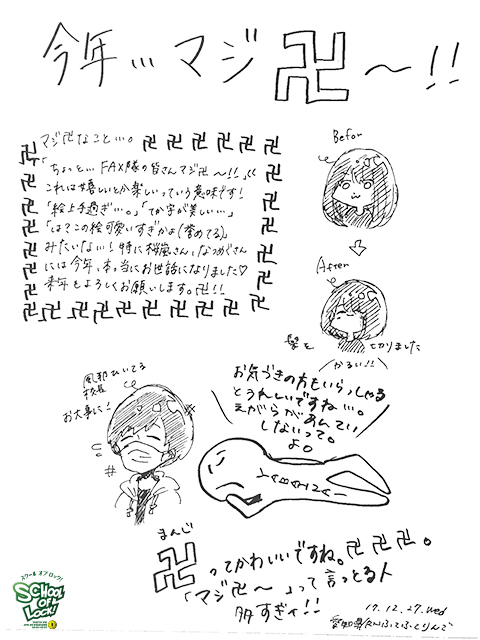 今年…マジ卍〜!!
マジ卍なこと…。卍卍卍卍卍卍
「ちょっと… FAX隊の皆さんマジ卍〜!!」
これは嬉しいとか楽しいっていう意味です!
「絵上手過ぎ…。」「てか字が美しい…」
「は?この絵可愛いすぎかよ(誉めてる)」
みたいない!特に桜嵐さん、なつめぐさん
には今年、本当にお世話になりました♡
来年もよろしくお願いします。卍!!
Befor
After
髪を切りました
かるい!!
風邪ひいてる
校長
お大事に!
お気づきの方もいらっしゃる
とうれしいですね…。
えがらがあんてい
しないって。
よ。
まんじ
卍ってかわいいですね。卍卍卍。
「マジ卍〜」って言っとる人
多すぎィ!!
17.12.27.wed
愛知県/RNふてふてりんご
スクール オブ ロック!
SCHOOL OF LOCK!